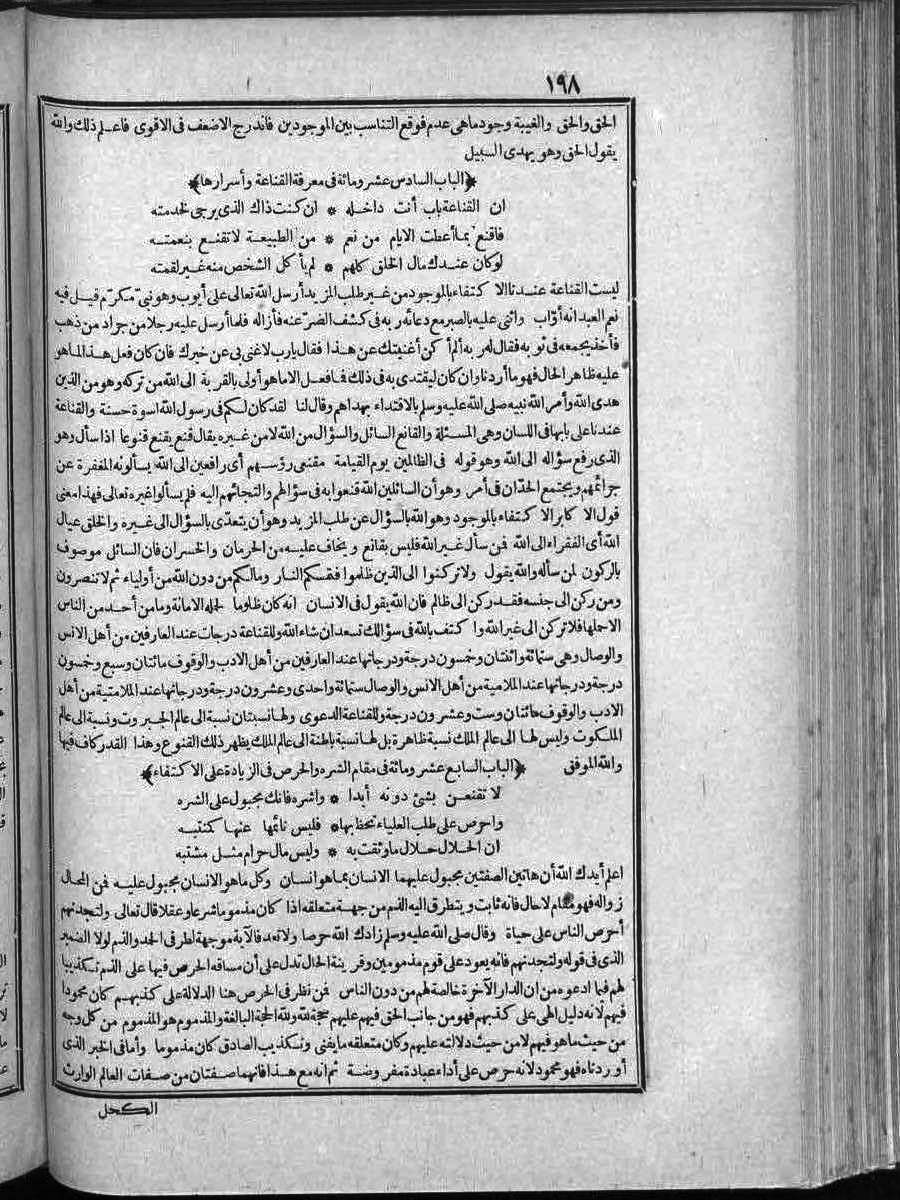 ١٩٨
الحق والحق والغيبة وجود ماهى عدم فوقع التناسب بين الموجودين فاندرج الاضعف فى الاقوى فاعلم ذلك والله
يقول الحق وهو يهدى السبيل
﴿الباب السادس عشر ومائة فى معرفة القناعة وأسرارها﴾
ان القناعة باب أنت داخله * ان كنت ذاك الذى يرجى لخدمته
فاقنع بما أعطت الايام من نعم * من الطبيعة لا تقنع بنعمته
لو كان عندك مال الخلق كلهم * لم يأ كل الشخص منه غير لقمته
ليست القناعة عندنا الا كتفاء بالموجود من غير طلب المزيد أرسل الله تعالى على أيوب وهو نبى مكرم قيل فيه
نعم العبد انه أوّاب واثنى عليه بالصبر مع دعائه ربه فى كشف الضر عنه فأزاله فلما أرسل عليه رجلا من جراد من ذهب
فأخذ يجمعه فى ثوبه فقال له ربه ألم أ كن أغنيتك عن هذا فقال يارب لا غنى بى عن خيرك فان كان فعل هذا لما هو
عليه ظاهر الحال فهو ما أردنا وان كان ليقتدى به فى ذلك فما فعل الا ما هو أولى بالقربة الى الله من تركه وهو من الذين
هدى الله وأمر الله نبيه صلى الله عليه وسلم بالاقتداء بهداهم وقال لنا لقد كان لكم فى رسول الله اسوة حسنة والقناعة
عندنا على بابها فى اللسان وهى المسئلة والقانع السائل والسؤال من الله لا من غيره يقال قنع يقنع قنوعا اذا سأل وهو
الذى رفع سؤاله الى الله وهو قوله فى الظالمين يوم القيامة مقنعى رؤسهم أى رافعين الى الله يسألونه المغفرة عن
جرائمهم ويجتمع الحدّان فى أمر وهو أن السائلين الله قنعوا به فى سؤالهم والتجائهم اليه فلم يسألوا غيره تعالى فهذا معنى
قول الا كابر الا كتفاء بالموجود وهو الله بالسؤال عن طلب المزيد وهو أن يتعدّى بالسؤال الى غيره والخلق عيال
الله أى الفقراء الى الله فمن سأل غير الله فليس بقانع ويخاف عليه من الحرمان والخسران فان السائل موصوف
بالركون لمن سأله والله يقول ولا تركنوا الى الذين ظلموا فتمسكم النار ومالكم من دون الله من أولياء ثم لا تنصرون
ومن ركن الى جنسه فقد ركن الى ظالم فان الله يقول فى الانسان انه كان ظلوما لحمله الامانة وما من أحد من الناس
الا حملها فلا تركن الى غير الله وا كتف بالله فى سؤالك تسعد ان شاء الله وللقناعة درجات عند العارفين من أهل الانس
والوصال وهى ستمائة واثنتان وخمسون درجة ودرجاتها عند العارفين من أهل الادب والوقوف مائتان وسبع وخمسون
درجة ودرجاتها عند الملامية من أهل الانس والوصال ستمائة واحدى وعشرون درجة ودرجاتها عند الملامتية من أهل
الادب والوقوف مائتان وست وعشرون درجة وللقناعة الدعوى ولها نسبتان نسبة الى عالم الجبروت ونسبة الى عالم
الملكوت وليس لها الى عالم الملك نسبة ظاهرة بل لها نسبة باطنة الى عالم الملك يظهر ذلك القنوع وهذا القدر كاف فيها
والله الموفق ﴿الباب السابع عشر ومائة فى مقام الشره والحرص فى الزيادة على الا كتفاء﴾
لا تقنعن بشئ دونه أبدا * واشره فانك مجبول على الشره
واحرص على طلب العلياء تحظ بها * فليس نائمها عنها كمنتبه
ان الحلال حلال ما وثقت به * وليس مال حرام مثل مشتبه
اعلم أيدك الله أن هاتين الصفتين مجبول عليهما الانسان بما هو انسان وكل ما هو الانسان مجبول عليه فمن المحال
زواله فهو مقام لا حال فانه ثابت ويتطرق اليه الذم من جهة متعلقه اذا كان مذموما شرعا وعقلا قال تعالى ولتجدنهم
أحرص الناس على حياة وقال صلى الله عليه وسلم زادك الله حرصا ولا تعد فالآية موجهة لطرفى الحمد والذم لولا الضمير
الذى فى قوله ولتجدنهم فانه يعود على قوم مذمومين وقرينة الحال تدل على أن مساقه الحرص فيها على الذم تكذيبا
لهم فيما ادعوه من ان الدار الآخرة خالصة لهم من دون الناس فمن نظر فى الحرص هنا الدلالة على كذبهم كان محمودا
فيهم لانه دليل الهى على كذبهم فهو من جانب الحق فيهم عليهم حجة لله ولله الحجة البالغة والمذموم هو المذموم من كل وجه
من حيث ما هو فيهم لا من حيث دلالته عليهم وكان متعلقه ما يفنى وتكذيب الصادق كان مذموما وأما فى الخبر الذى
أوردناه فهو محمود لانه حرص على أداء عبادة مفروضة ثم انه مع هذا فانهما صفتان من صفات العالم الوارث
الكحل